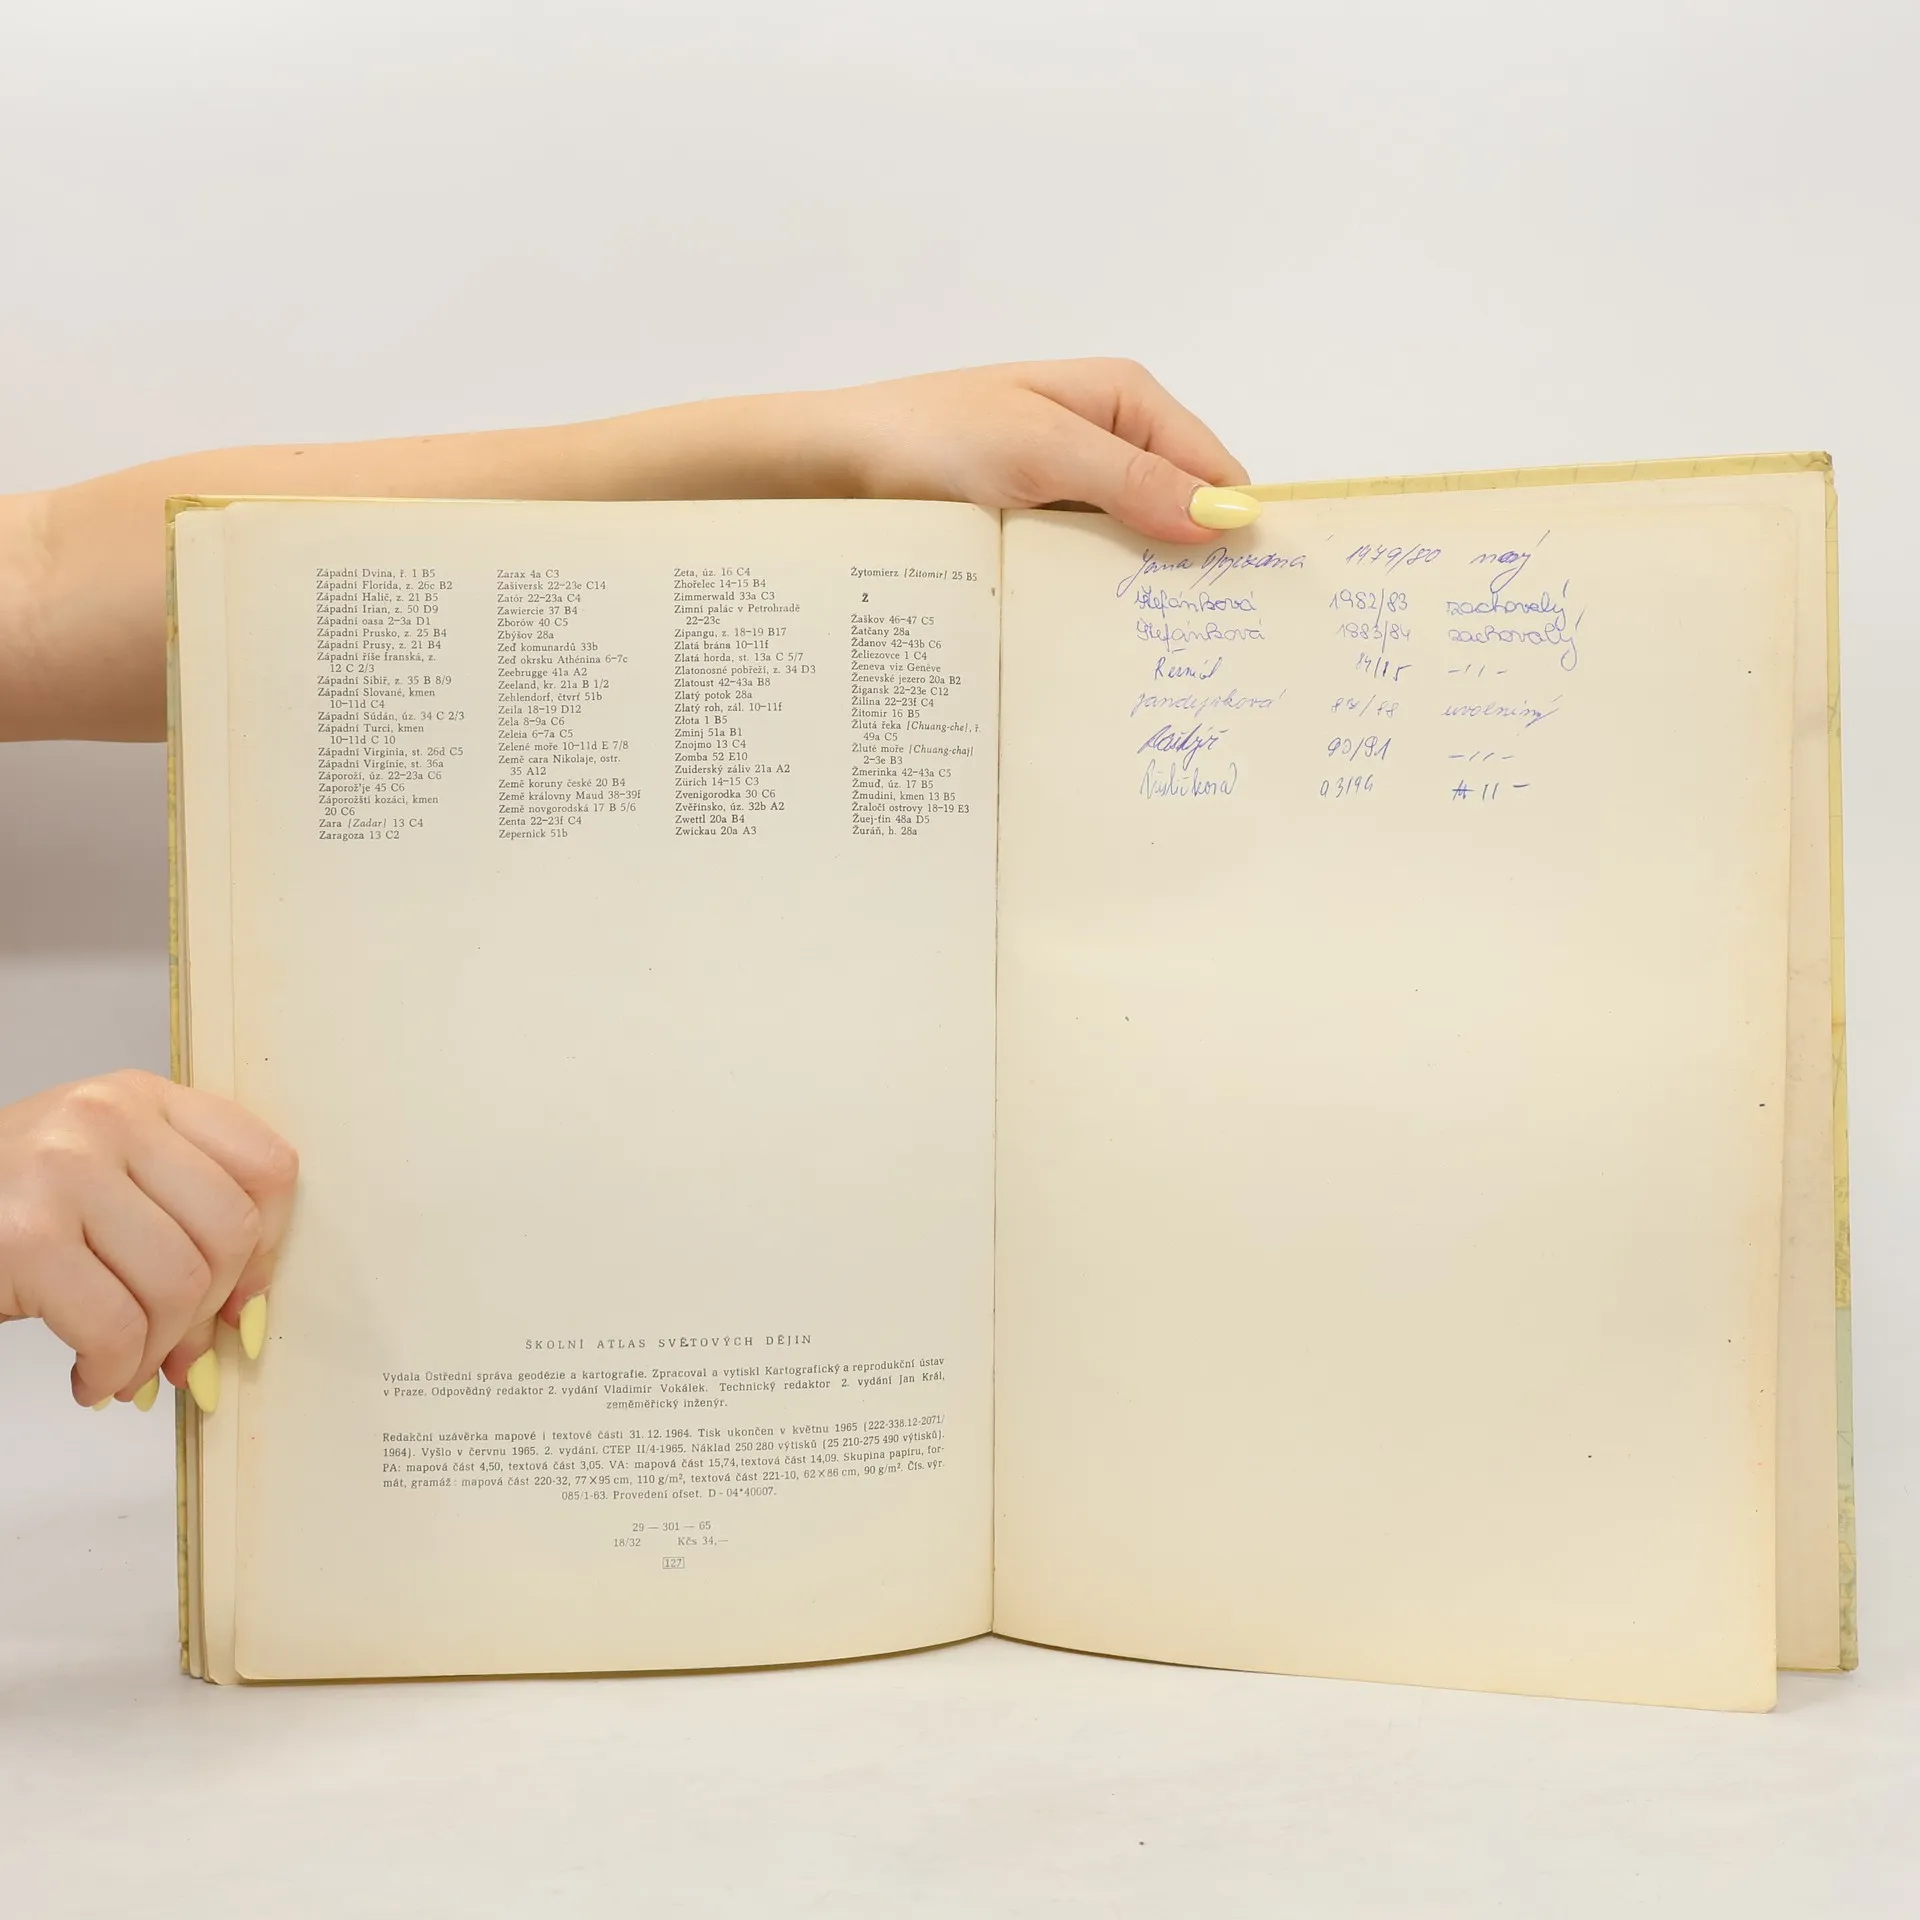 Západní Dvina, ř. 1 B5
Západní Florida, z. 26c B2
Západní Halič, z. 21 B5
Západní Irian, z. 50 D9
Západní oasa 2–3a D1
Západní Prusko, z. 25 B4
Západní Prusy, z. 21 B4
Západní říše franská, z.
12 C 2/3
Západní Sibiř, z. 35 B 8/9
Západní Slované, kmen
10–11d C4
Západní Súdán, úz. 34 C 2/3
Západní Turci, kmen
10–11d C 10
Západní Virginia, st. 26d C5
Západní Virginie, st. 36a
Záporoží, úz. 22–23a C6
Zaporož'je 45 C6
Záporožští kozáci, kmen
20 C6
Zara [Zadar] 13 C4
Zaragoza 13 C2
Zarax 4a C3
Zašiversk 22–23e C14
Zatór 22–23a C4
Zawiercie 37 B4
Zborów 40 C5
Zbýšov 28a
Zeď komunardů 33b
Zeď okrsku Athénina 6–7c
Zeebrugge 41a A2
Zeeland, kr. 21a B 1/2
Zehlendorf, čtvrť 51b
Zeila 18–19 D12
Zela 8–9a C6
Zeleia 6–7a C5
Zelené moře 10–11d E 7/8
Země cara Nikolaje, ostr.
35 A12
Země koruny české 20 B4
Země královny Maud 38–39f
Země novgorodská 17 B 5/6
Zenta 22–23f C4
Zepernick 51b
Zeta, úz. 16 C4
Zhořelec 14–15 B4
Zimmerwald 33a C3
Zimní palác v Petrohradě
22–23c
Zipangu, z. 18–19 B17
Zlatá brána 10–11f
Zlatá horda, st. 13a C 5/7
Zlatonosné pobřeží, z. 34 D3
Zlatoust 42–43a B8
Zlatý potok 28a
Zlatý roh, zál. 10–11f
Złota 1 B5
Zminj 51a B1
Znojmo 13 C4
Zomba 52 E10
Zuiderský záliv 21a A2
Zürich 14–15 C3
Zvenigorodka 30 C6
Zvěřínsko, úz. 32b A2
Zwettl 20a B4
Zwickau 20a A3
Żytomierz [Žitomir] 25 B5
Ž
Žaškov 46–47 C5
Žatčany 28a
Ždanov 42–43b C6
Želiezovce 1 C4
Ženeva viz Genève
Ženevské jezero 20a B2
Žigansk 22–23e C12
Žilina 22–23f C4
Žitomir 16 B5
Žlutá řeka [Chuang-che], ř.
49a C5
Žluté moře [Chuang-chaj]
2–3e B3
Žmerinka 42–43a C5
Žmuď, úz. 17 B5
Žmudini, kmen 13 B5
Žraločí ostrovy 18–19 E3
Žuej-ťin 48a D5
Žuráň, h. 28a
ŠKOLNÍ ATLAS SVĚTOVÝCH DĚJIN
Vydala Ústřední správa geodézie a kartografie. Zpracoval a vytiskl Kartografický a reprodukční ústav
v Praze. Odpovědný redaktor 2. vydání Vladimír Vokálek. Technický redaktor 2. vydání Jan Král,
zeměměřický inženýr.
Redakční uzávěrka mapové i textové části 31. 12. 1964. Tisk ukončen v květnu 1965 (222-338.12-2071/
1964). Vyšlo v červnu 1965. 2. vydání. CTEP II/4-1965. Náklad 250 280 výtisků (25 210-275 490 výtisků).
PA: mapová část 4,50, textová část 3,05. VA: mapová část 15,74, textová část 14,09. Skupina papíru, for-
mát, gramáž: mapová část 220-32, 77×95 cm, 110 g/m², textová část 221-10, 62×86 cm, 90 g/m². Čís. výr.
085/1-63. Provedení ofset. D - 04*40007.
29 — 301 — 65
18/32 Kčs 34,—
127
Jana 1979/80 nový
Štefánková 1982/83 zachovalý
Štefánková 1983/84 zachovalý
84/85 –〃–
87/88
90/91 –〃–
93/94 〃 –